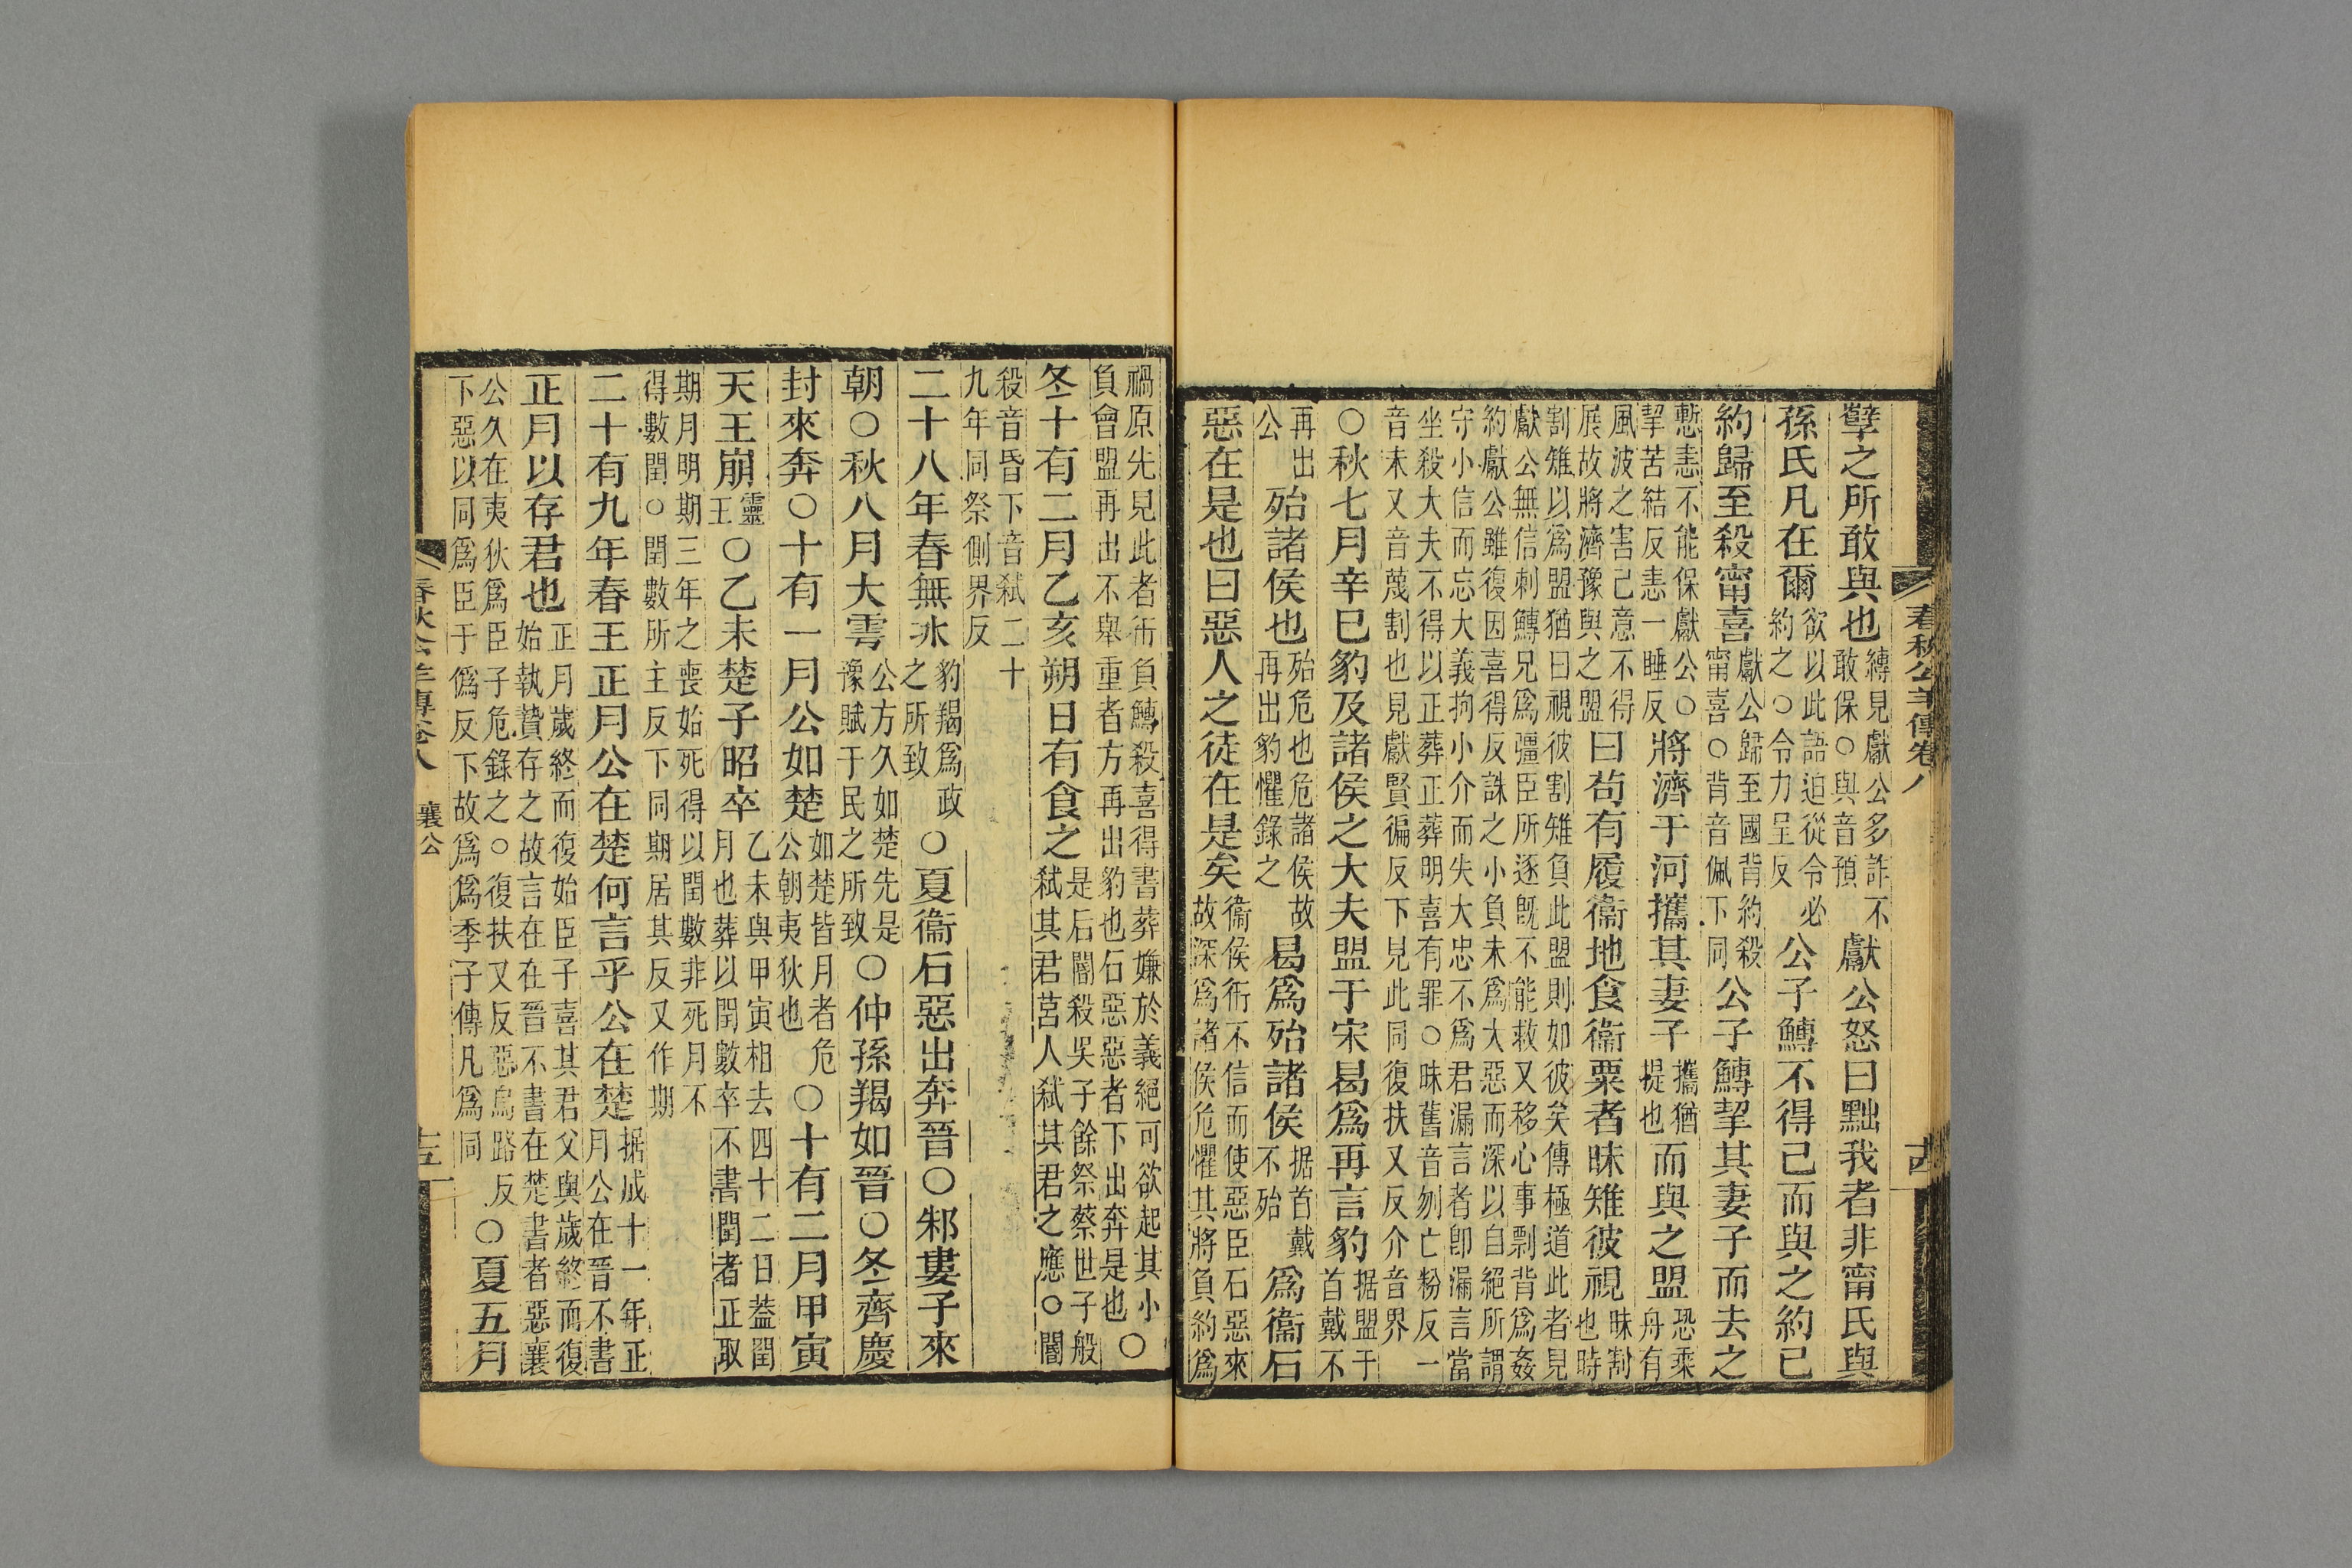 春秋公羊傳卷八
孽之所敢與也縳見獻公多詐不敢保○與音預獻公怒曰黜我者非甯氏與
孫氏凡在爾欲以此語迫從令必約之○令力呈反公子鱄不得已而與之約已
約歸至殺甯喜獻公歸至國背約殺甯喜○背音佩下同公子鱄挈其妻子而去之
慙恚不能保獻公○挈苦結反恚一睡反將濟于河攜其妻子攜猶提也而與之盟恐乘舟有
風波之害己意不得展故將濟豫與之盟曰苟有履衞地食衞粟者昧雉彼視昧割也時
割雉以爲盟猶曰視彼割雉負此盟則如彼矣傳極道此者見獻公無信刺鱄兄爲彊臣所逐旣不能救又移心事剽背爲姦
約獻公雖復因喜得反誅之小負未爲大惡而深以自絕所謂守小信而忘大義拘小介而失大忠不爲君漏言者卽漏言當
坐殺大夫不得以正葬正葬明喜有罪○昧舊音刎亡粉反一音未又音蔑割也見獻賢徧反下見此同復扶又反介音界
○秋七月辛巳豹及諸侯之大夫盟于宋曷爲再言豹据盟于首戴不
再出公殆諸侯也殆危也危諸侯故再出豹懼錄之曷爲殆諸侯据首戴不殆爲衞石
惡在是也曰惡人之徒在是矣衞侯衎不信而使惡臣石惡來故深爲諸侯危懼其將負約爲
禍原先見此者衎負鱄殺喜得書葬嫌於義絕可欲起其小負會盟再出不舉重者方再出豹也石惡惡者下出奔是也○
冬十有二月乙亥朔日有食之是后閽殺吳子餘祭蔡世子般弒其君莒人弒其君之應○閽
殺音昏下音弒二十九年同祭側界反
二十八年春無冰豹羯爲政之所致○夏衞石惡出奔晉○邾婁子來
朝○秋八月大雩公方久如楚先是豫賦于民之所致○仲孫羯如晉○冬齊慶
封來奔○十有一月公如楚如楚皆月者危公朝夷狄也○十有二月甲寅
天王崩靈王○乙未楚子昭卒乙未與甲寅相去四十二日蓋閏月也葬以閏數卒不書閏者正取
期月明期三年之喪始死得以閏數非死月不得數閏○閏數所主反下同期居其反又作期
二十有九年春王正月公在楚何言乎公在楚据成十一年正月公在晉不書
正月以存君也正月歲終而復始臣子喜其君父與歲終而復始執贄存之故言在在晉不書在楚書者惡襄
公久在夷狄爲臣子危錄之○復扶又反惡烏路反下惡以同爲臣于僞反下故爲爲季子傳凡爲同○夏五月
春秋公羊傳卷八 襄公